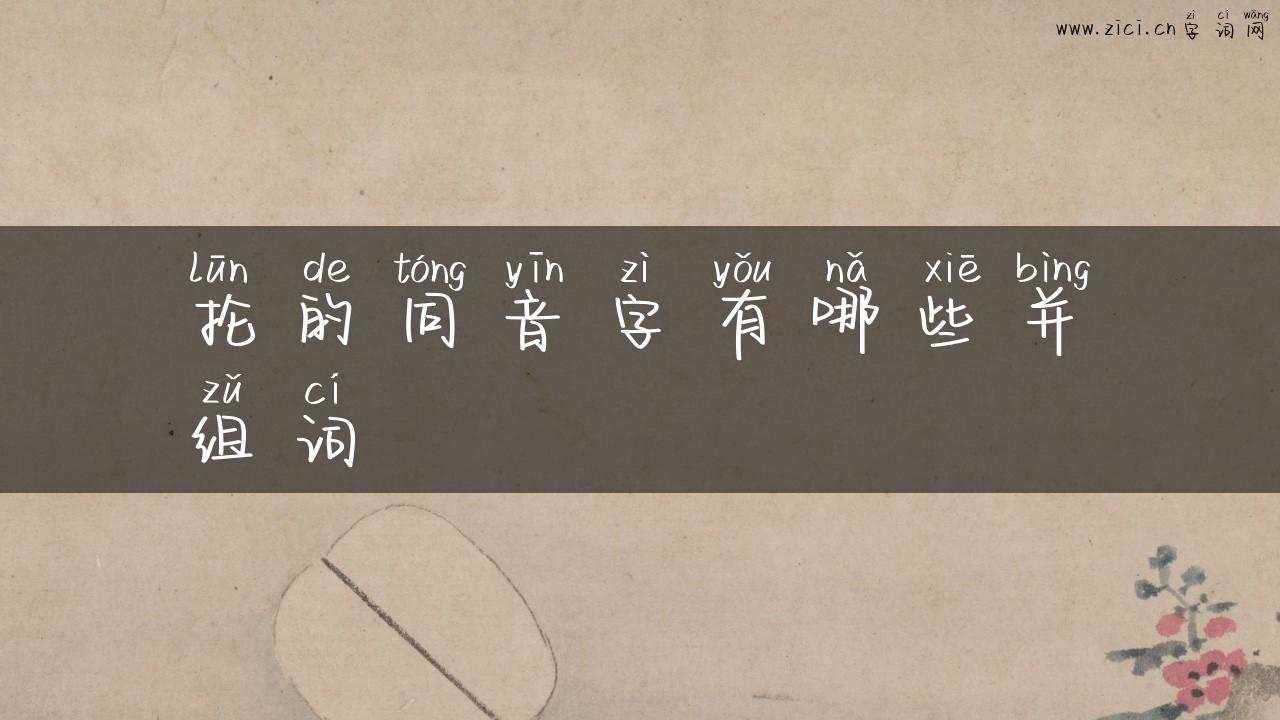 zì cí wǎng
www.zici.cn字词网
lūn de tóng yīn zì yǒu nǎ xiē bìng
抡的同音字有哪些并
zǔ cí
组词